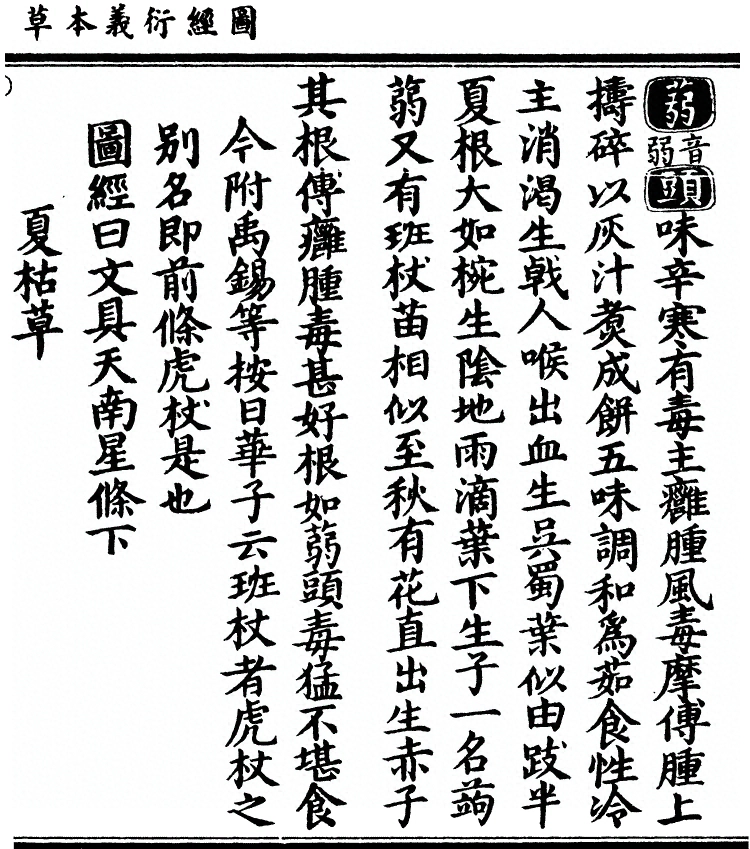 圖經衍義本草
蒻音弱頭味辛寒有毒主癰腫風毒摩傅腫上
擣碎以灰汁煑成餅五味調和爲茹食性冷
主消渴生戟人喉出血生吳蜀葉似由跋半
夏根大如椀生陰地雨滴葉下生子一名蒟
蒻又有班杖苗相似至秋有花直出生赤子
其根傅癰腫毒甚好根如蒻頭毒猛不堪食
今附禹錫等按日華子云班杖者虎杖之
別名即前條虎杖是也
圖經曰文具天南星條下
夏枯草